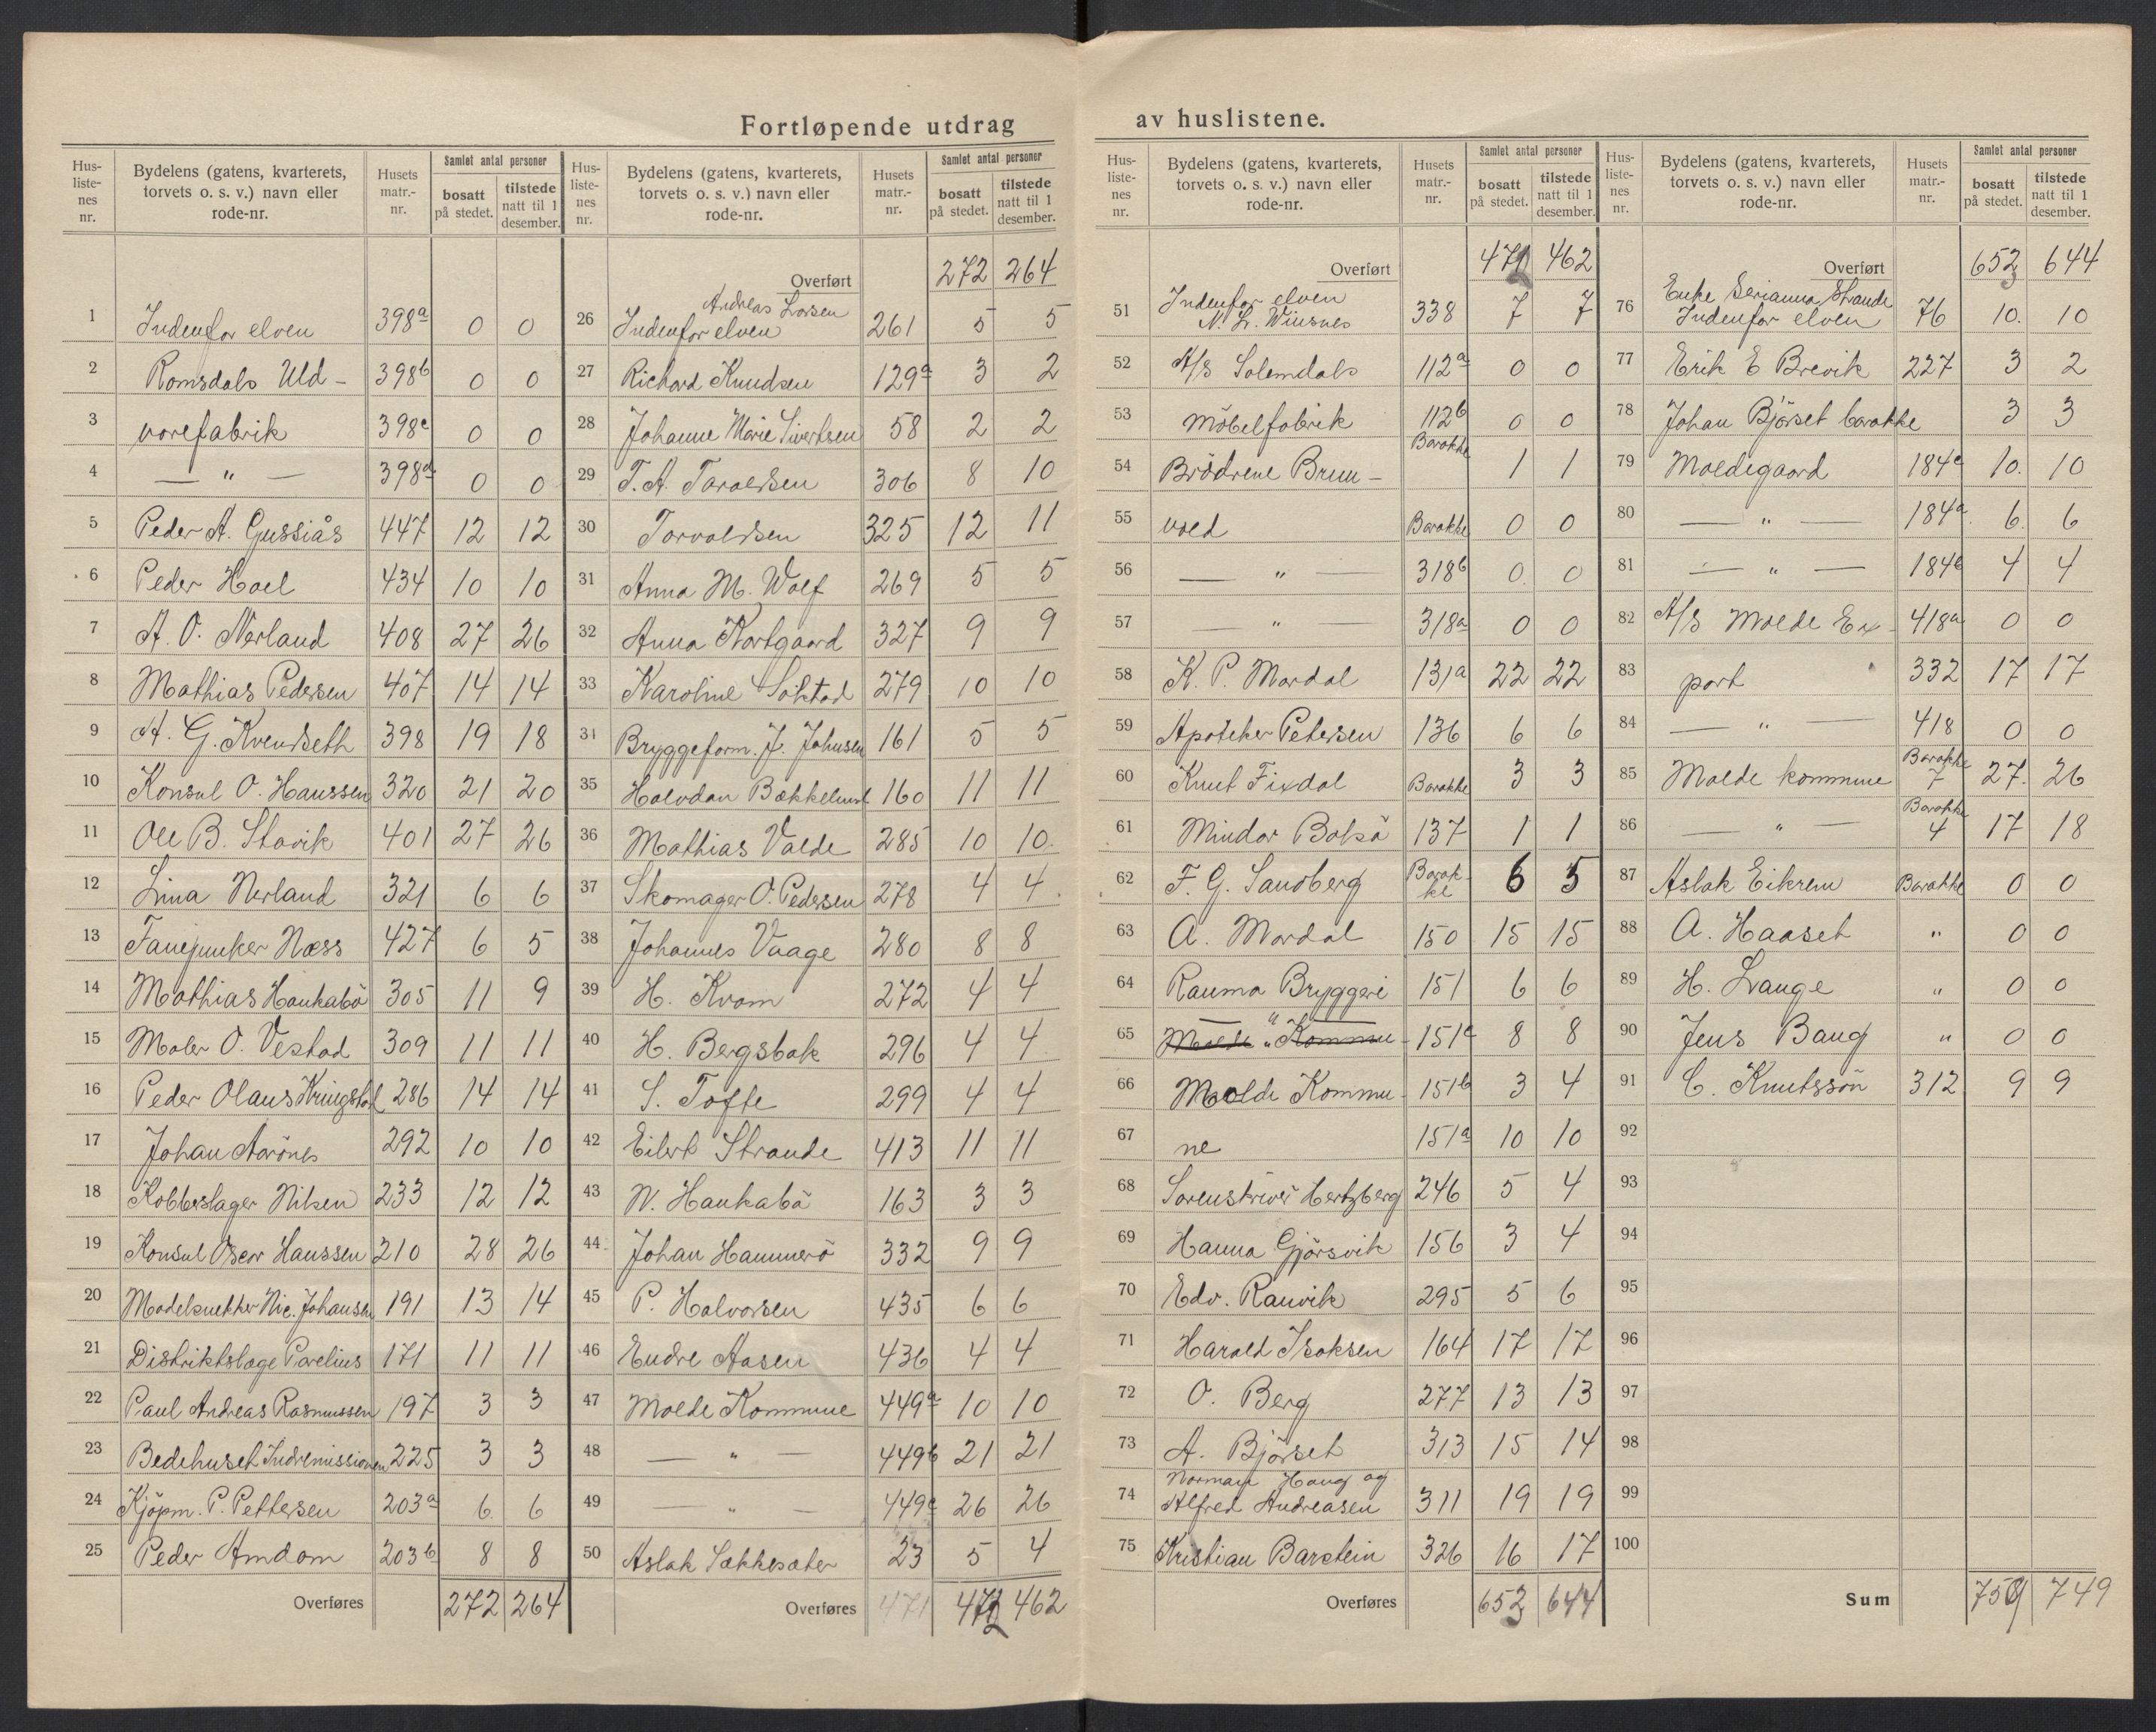 Fortløpende utdrag av huslistene.
Hus-liste-nes nr. | Bydelens (gatens, kvarterets, torvets o. s. v.) navn eller rode-nr. | Husets matr.-nr. | Samlet antal personer | bosatt på stedet. | tilstede natt til 1 desember.
1 Indenfor elven 398a 0 0
2 Romsdals Uld- 398b 0 0
3 varefabrik 398c 0 0
4 — " — 398d 0 0
5 Peder A. Gussiås 447 12 12
6 Peder Hoel 434 10 10
7 A. O. Nerland 408 27 26
8 Mathias Pedersen 407 14 14
9 A. G. Kvendseth 398 19 18
10 Konsul O. Hanssen 320 21 20
11 Ole B. Stavik 401 27 26
12 Lina Nerland 321 6 6
13 Fanejunker Næss 427 6 5
14 Mathias Haukabö 305 11 9
15 Maler O. Vestad 309 11 11
16 Peder Olaus Kringstad 286 14 14
17 Johan Aarönes 292 10 10
18 Kobberslager Nilsen 233 12 12
19 Konsul Oscar Hanssen 210 28 26
20 Modelsnekker Nic. Johansen 191 13 14
21 Distriktslæge Parelius 171 11 11
22 Paul Andreas Rasmussen 197 3 3
23 Bedehuset Indremissionen 225 3 3
24 Kjöpm. P. Pettersen 203a 6 6
25 Peder Amdam 203b 8 8
Overføres 272 264
Hus-liste-nes nr. | Bydelens (gatens, kvarterets, torvets o. s. v.) navn eller rode-nr. | Husets matr.-nr. | Samlet antal personer | bosatt på stedet. | tilstede natt til 1 desember.
Overført 272 264
Andreas Larsen
26 Indenfor elven 261 5 5
27 Richard Knudsen 129a 3 2
28 Johanne Marie Sivertsen 58 2 2
29 T. A. Tarvaldsen 306 8 10
30 Torvaldsen 325 12 11
31 Anna M. Wolf 269 5 5
32 Anna Kortgaard 327 9 9
33 Karoline Solstad 279 10 10
34 Bryggeform. J. Johnsen 161 5 5
35 Halvdan Bækkelund 160 11 11
36 Mathias Valde 285 10 10
37 Skomager O. Pedersen 278 4 4
38 Johannes Vaage 280 8 8
39 H. Kvam 272 4 4
40 H. Bergsbak 296 4 4
41 S. Tofte 299 4 4
42 Eilert Strande 413 11 11
43 N. Haukabö 163 3 3
44 Johan Hammerö 332 9 9
45 P. Halvorsen 435 6 6
46 Endre Aasen 436 4 4
47 Molde Kommune 449a 10 10
48 — " — 449b 21 21
49 — " — 449c 26 26
50 Aslak Sækkesæter 23 5 4
Overføres 471 472 462
Hus-liste-nes nr. | Bydelens (gatens, kvarterets, torvets o. s. v.) navn eller rode-nr. | Husets matr.-nr. | Samlet antal personer | bosatt på stedet. | tilstede natt til 1 desember.
Overført 471 462
Indenfor elven
51 N. L. Wiisnes 338 7 7
52 A/S Solemdals 112a 0 0
53 Möbelfabrik 112b 0 0
54 Brödrene Brun- Barakke 1 1
55 vold Barakke 0 0
56 — " — 318b 0 0
57 — " — 318a 0 0
58 K. P. Mordal 131a 22 22
59 Apoteker Petersen 136 6 6
60 Knut Fixdal Barakke 3 3
61 Mindor Bolsö 137 1 1
62 F. G. Sandberg Barakke 6 5
63 A. Mordal 150 15 15
64 Rauma Bryggeri 151 6 6
65 — " — Molde Kommu- 151c 8 8
66 Molde Kommu- 151b 3 4
67 ne 151a 10 10
68 Sorenskriver Hertzberg 246 5 4
69 Hanna Gjörsvik 156 3 4
70 Edv. Ranvik 295 5 6
71 Harald Isaksen 164 17 17
72 O. Berg 277 13 13
73 A. Björset 313 15 14
Normann Haug og
74 Alfred Andreasen 311 19 19
75 Kristian Barstein 326 16 17
Overføres 652 644
Hus-liste-nes nr. | Bydelens (gatens, kvarterets, torvets o. s. v.) navn eller rode-nr. | Husets matr.-nr. | Samlet antal personer | bosatt på stedet. | tilstede natt til 1 desember.
Overført 652 644
Enke Serianna Strande
76 Indenfor elven 76 10. 10
77 Erik E Brevik 227 3 2
78 Johan Björset barakke 3 3
79 Moldegaard 184c 10. 10
80 — " — 184a 6. 6
81 — " — 184b 4 4
82 A/S Molde Ex- 418a 0 0
83 port 332 17 17
84 — " — 418 0 0
85 Molde kommune Barakke 7 27. 26
86 — " — Barakke 4 17 18
87 Aslak Eikrem Barakke 0 0
88 A. Haaset " 0 0
89 H. Lange " 0 0
90 Jens Baug " 0 0
91 C. Knutssön 312 9 9
92
93
94
95
96
97
98
99
100
Sum 759 749